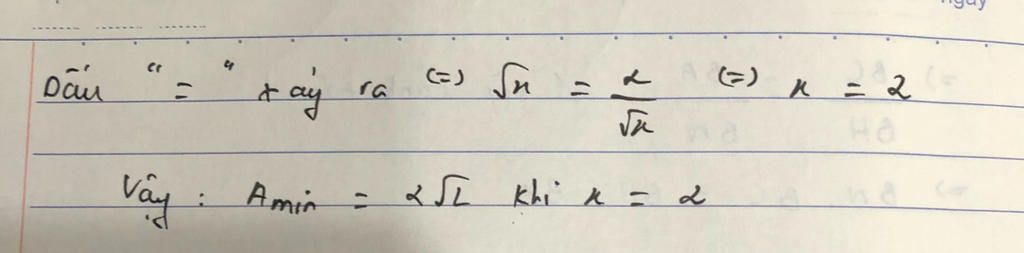 ngày
Dấu "=" xảy ra (=) √x = 2/√x (=) x = 2
Vậy : Amin = 2√2 khi x = 2